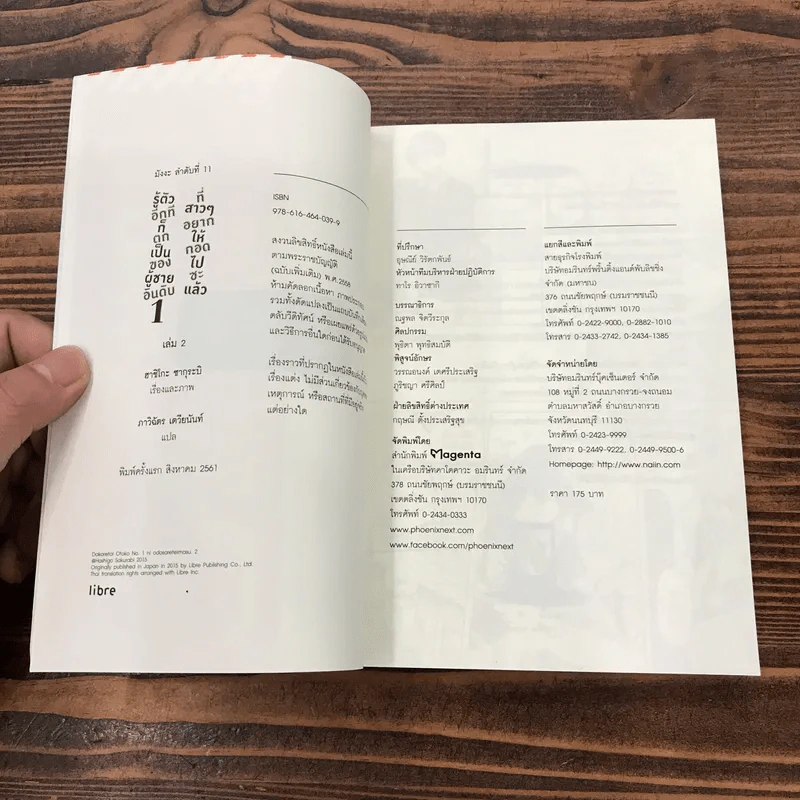 มังงะ ลำดับที่ 11
รู้ตัว
อีกที
ก็
ตก
เป็น
ของ
ผู้ชาย
อันดับ
1
ที่
สาวๆ
อยาก
ให้
กอด
ไป
ซะ
แล้ว
เล่ม 2
ฮาชิโกะ ซากุระบิ
เรื่องและภาพ
ภาวิฉัตร เตวียนันท์
แปล
พิมพ์ครั้งแรก สิงหาคม 2561
Dakaretai Otoko No. 1 ni odosareteimasu. 2
©Hashigo Sakurabi 2015
Originally published in Japan in 2015 by Libre Publishing Co., Ltd.
Thai translation rights arranged with Libre Inc.
libre
ISBN
978-616-464-039-9
สงวนลิขสิทธิ์หนังสือเล่มนี้
ตามพระราชบัญญัติ
(ฉบับเพิ่มเติม) พ.ศ.2558
ห้ามคัดลอกเนื้อหา ภาพประกอบ
รวมทั้งดัดแปลงเป็นแถบบันทึกเสียง
ตลับวีดิทัศน์ หรือเผยแพร่ด้วยรูปแบบ
และวิธีการอื่นใดก่อนได้รับอนุญาต
เรื่องราวที่ปรากฏในหนังสือเล่มนี้เป็น
เรื่องแต่ง ไม่มีส่วนเกี่ยวข้องกับบุคคล
เหตุการณ์ หรือสถานที่ที่มีอยู่จริง
แต่อย่างใด
ที่ปรึกษา
อุษณีย์ วิรัตกพันธ์
หัวหน้าทีมบริหารฝ่ายปฏิบัติการ
ทาโร อิวาซากิ
บรรณาธิการ
ณฐพล จิตวีระกุล
ศิลปกรรม
พุธิตา พุทธิสมบัติ
พิสูจน์อักษร
วรรณอนงค์ เตศรีประเสริฐ
ภูริชญา ศรีศิลป์
ฝ่ายลิขสิทธิ์ต่างประเทศ
กฤษณี ตั้งประเสริฐสุข
จัดพิมพ์โดย
สำนักพิมพ์ Magenta
ในเครือบริษัทคาโดคาวะ อมรินทร์ จำกัด
378 ถนนชัยพฤกษ์ (บรมราชชนนี)
เขตตลิ่งชัน กรุงเทพฯ 10170
โทรศัพท์ 0-2434-0333
www.phoenixnext.com
www.facebook.com/phoenixnext
แยกสีและพิมพ์
สายธุรกิจโรงพิมพ์
บริษัทอมรินทร์พริ้นติ้งแอนด์พับลิชชิ่ง
จำกัด (มหาชน)
376 ถนนชัยพฤกษ์ (บรมราชชนนี)
เขตตลิ่งชัน กรุงเทพฯ 10170
โทรศัพท์ 0-2422-9000, 0-2882-1010
โทรสาร 0-2433-2742, 0-2434-1385
จัดจำหน่ายโดย
บริษัทอมรินทร์บุ๊คเซ็นเตอร์ จำกัด
108 หมู่ที่ 2 ถนนบางกรวย-จงถนอม
ตำบลมหาสวัสดิ์ อำเภอบางกรวย
จังหวัดนนทบุรี 11130
โทรศัพท์ 0-2423-9999
โทรสาร 0-2449-9222, 0-2449-9500-6
Homepage: http://www.naiin.com
ราคา 175 บาท